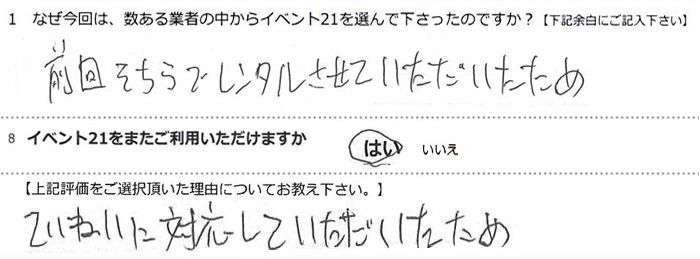 1 なぜ今回は、数ある業者の中からイベント21を選んで下さったのですか？【下記余白にご記入下さい】
前回そちらでレンタルさせていただいたため
8 イベント21をまたご利用いただけますか はい いいえ
【上記評価をご選択頂いた理由についてお教え下さい。】
ていねいに対応していただいたため